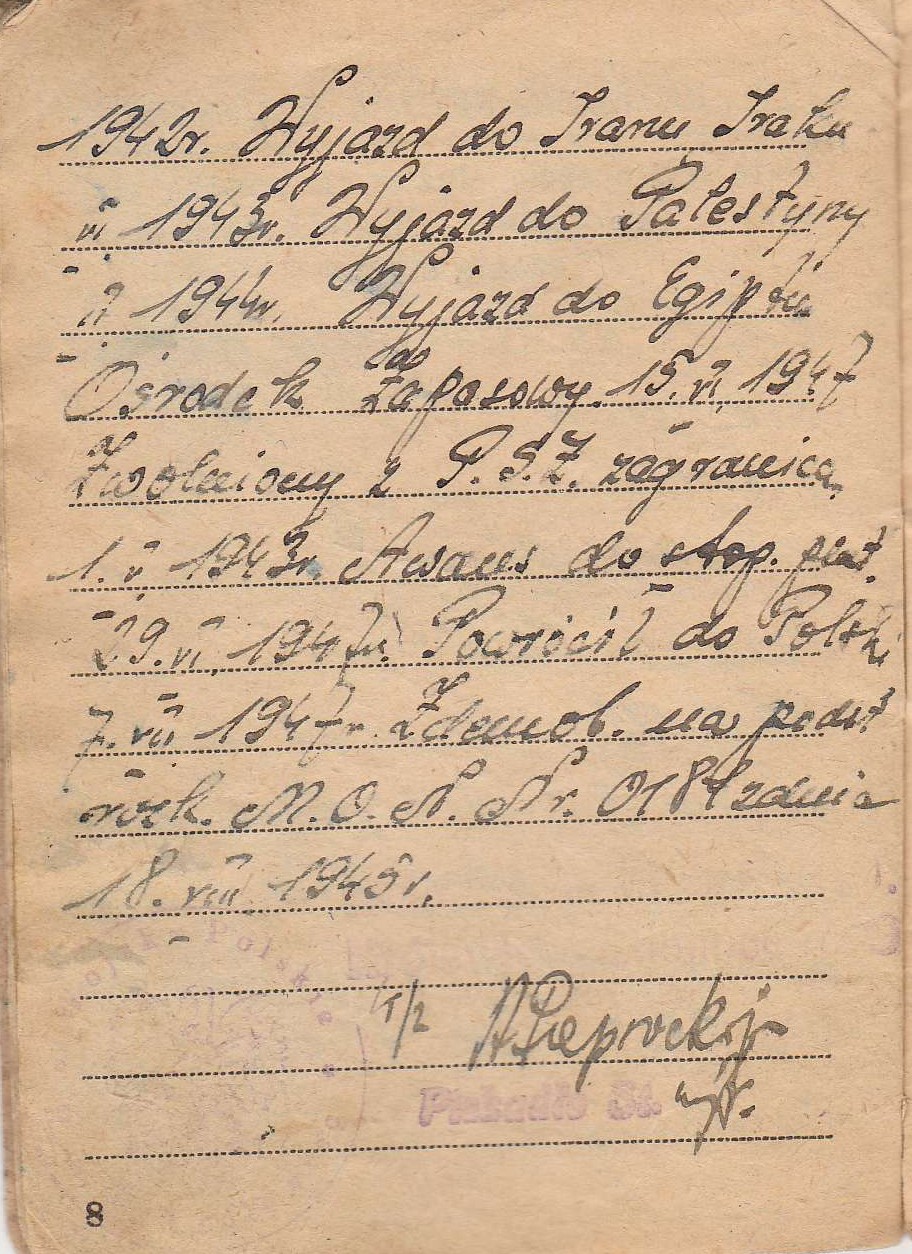 1942r. Wyjazd do Iranu Iraku
VI 1943r. Wyjazd do Palestyny
1944r. Wyjazd do Egiptu
do
Ośrodek Zapasowy. 15. VI. 1947
Zwolniony z P.S.Z. zagranicą.
1. V 1943r. Awans do stop. plut.
29. VI. 1947r. Powrócił do Polski
7. VII 1947r Zdemob. na podst
rozk. M.O.N. Nr. 0181 z dnia
18. VIII 1945r.
Wojsko Polskie
8